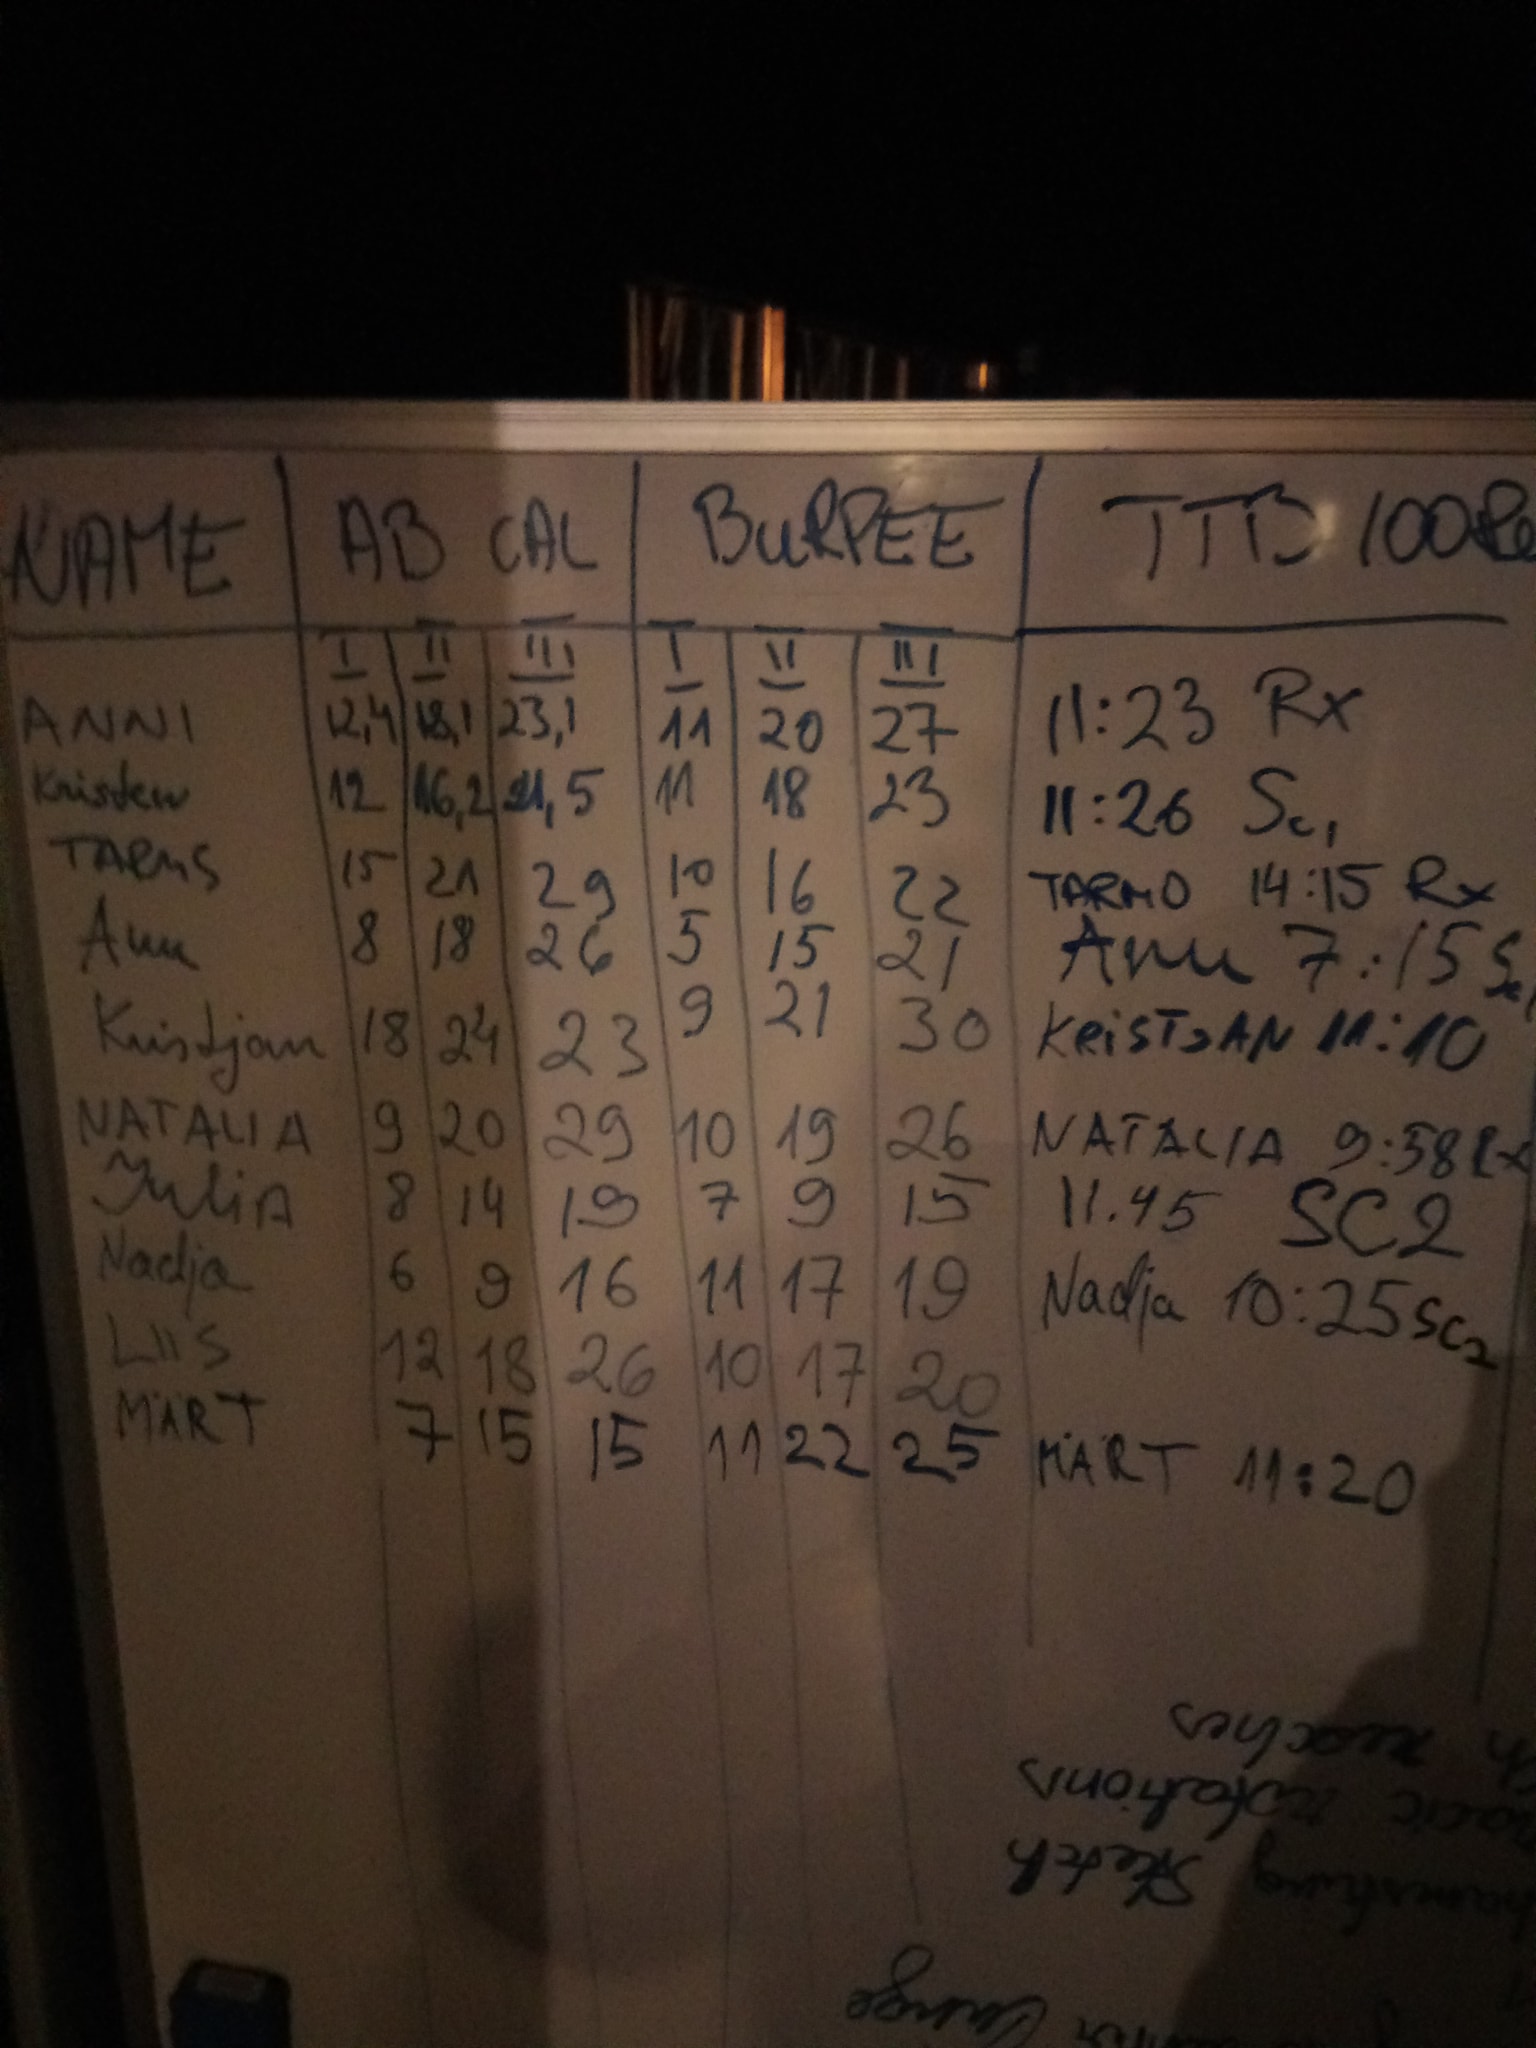 NAME AB CAL BURPEE TTB 100Re
I II III I II III
ANNI 12,4 18,1 23,1 11 20 27 11:23 Rx
Kristen 12 16,2 21,5 11 18 23 11:26 Sc1
TARMS 15 21 29 10 16 22 TARMO 14:15 Rx
Anu 8 18 26 5 15 21 Anu 7:15 Sc1
Kristjan 18 24 23 9 21 30 KRISTJAN 11:10
NATALIA 9 20 29 10 19 26 NATALIA 9:58 Rx
JuliA 8 14 19 7 9 15 11.45 SC2
Nadja 6 9 16 11 17 19 Nadja 10:25 SC2
LIIS 12 18 26 10 17 20
MÄRT 7 15 15 11 22 25 MÄRT 11:20
reaches
rotations
stretch
lunge